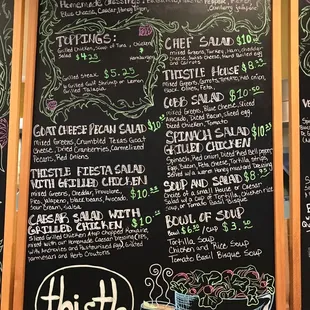 Homemade Dressings
Blue Cheese, Caesar, Honey
TOPPINGS:
Grilled Chicken, Scoop of Tuna, Chicken
Salad $4.25 Hamburger
Grilled Steak $5.25
Grilled Gulf Shrimp or Lemon
Grilled Tilapia
GOAT CHEESE PECAN SALAD $10
Mixed Greens, Crumbled Texas Goat
Cheese, Dried Cranberries, Carmelized
Pecans, Red Onions
THISTLE FIESTA SALAD
WITH GRILLED CHICKEN
Mixed Greens, Cheddar, Provolone,
Pico, Jalapeno, Black beans, Avocado,
Sour Cream, Salsa $10
CAESAR SALAD WITH
GRILLED CHICKEN $10
Sliced Grilled Chicken Atop Chopped Romaine,
mixed with our Homemade Caesar Dressing
with Anchovies and Pasteurized Egg, Grilled
Parmesan and Herb Croutons
Thistle
CHEF SALAD $10
Mixed Greens, Turkey, Ham, Cheddar
Cheese, Swiss Cheese, Hard Boiled egg
and Carrots
THISTLE HOUSE $8
Mixed Greens, Carrots, Tomatoes, Red onion,
Black Olives, Feta
COBB SALAD $10
Mixed Greens, Blue Cheese, Sliced
Avocado, Diced Bacon, Sliced egg,
Diced Chicken, Tomato
SPINACH SALAD $10
GRILLED CHICKEN
Spinach, Red onion, Diced Red Bell pepper,
Bacon, Feta Cheese, Tortilla strips,
Served w/ warm Honey mustard Dressing
SOUP AND SALAD $8
Choice of a small House or Caesar
Salad w/ a Cup of Tortilla, Chicken Rice
Soup, or Tomato Basil Bisque
BOWL OF SOUP
Bowl $6 Cup $3.50
Tortilla Soup
Chicken and Rice Soup
Tomato Basil Bisque Soup